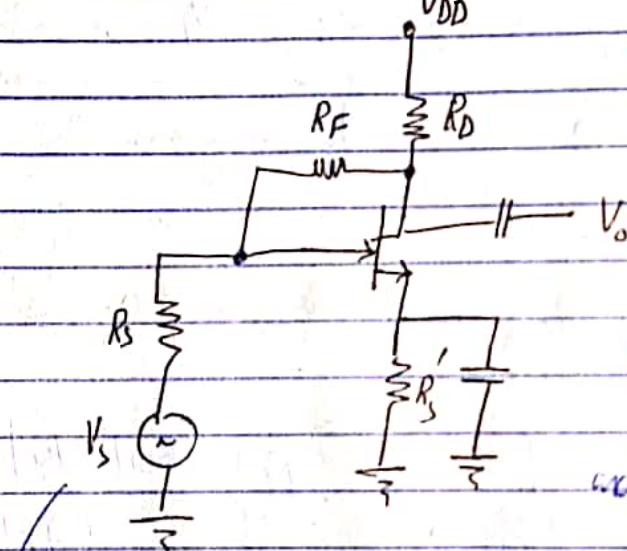 VDD
RF
RD
Vo
Rs
Rs'
Vs
~